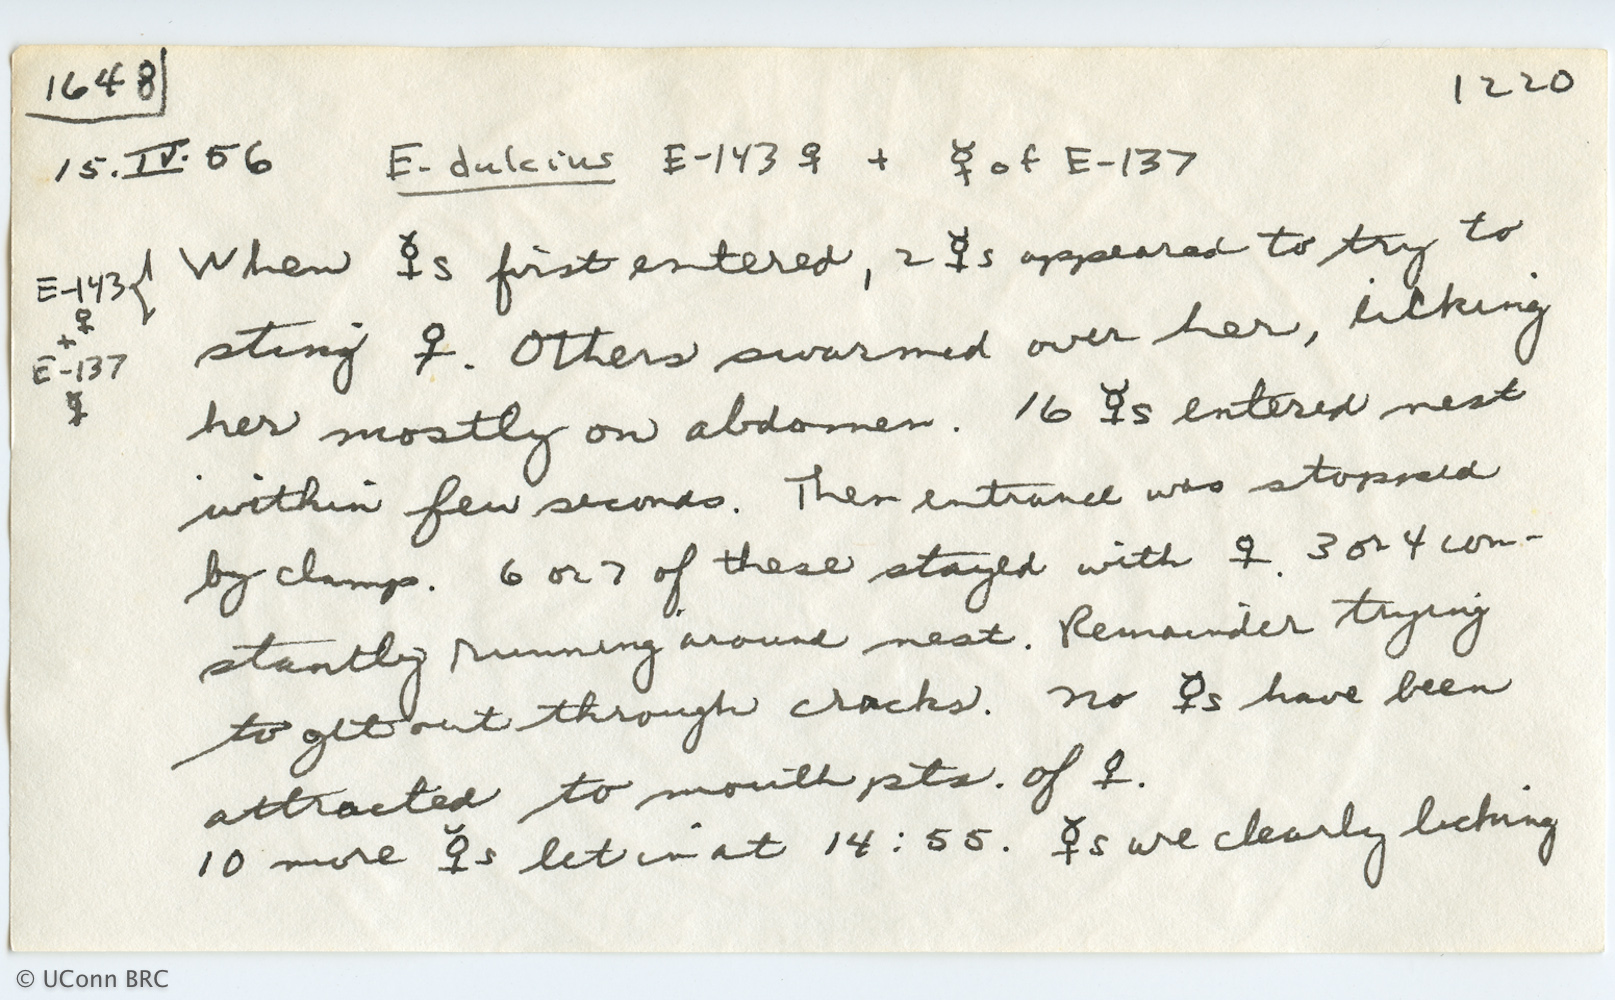 1648
1220
15.IV.56 E. dulcius E-143 ♀ + ☿ of E-137
E-143
♀
+
E-137
☿
When ☿s first entered, 2 ☿s appeared to try to
sting ♀. Others swarmed over her, licking
her mostly on abdomen. 16 ☿s entered nest
within few seconds. Then entrance was stopped
by clamp. 6 or 7 of these stayed with ♀. 3 or 4 con-
stantly running around nest. Remainder trying
to get out through cracks. No ☿s have been
attracted to mouth pts. of ♀.
10 more ☿s let in at 14:55. ☿s are clearly licking
© UConn BRC